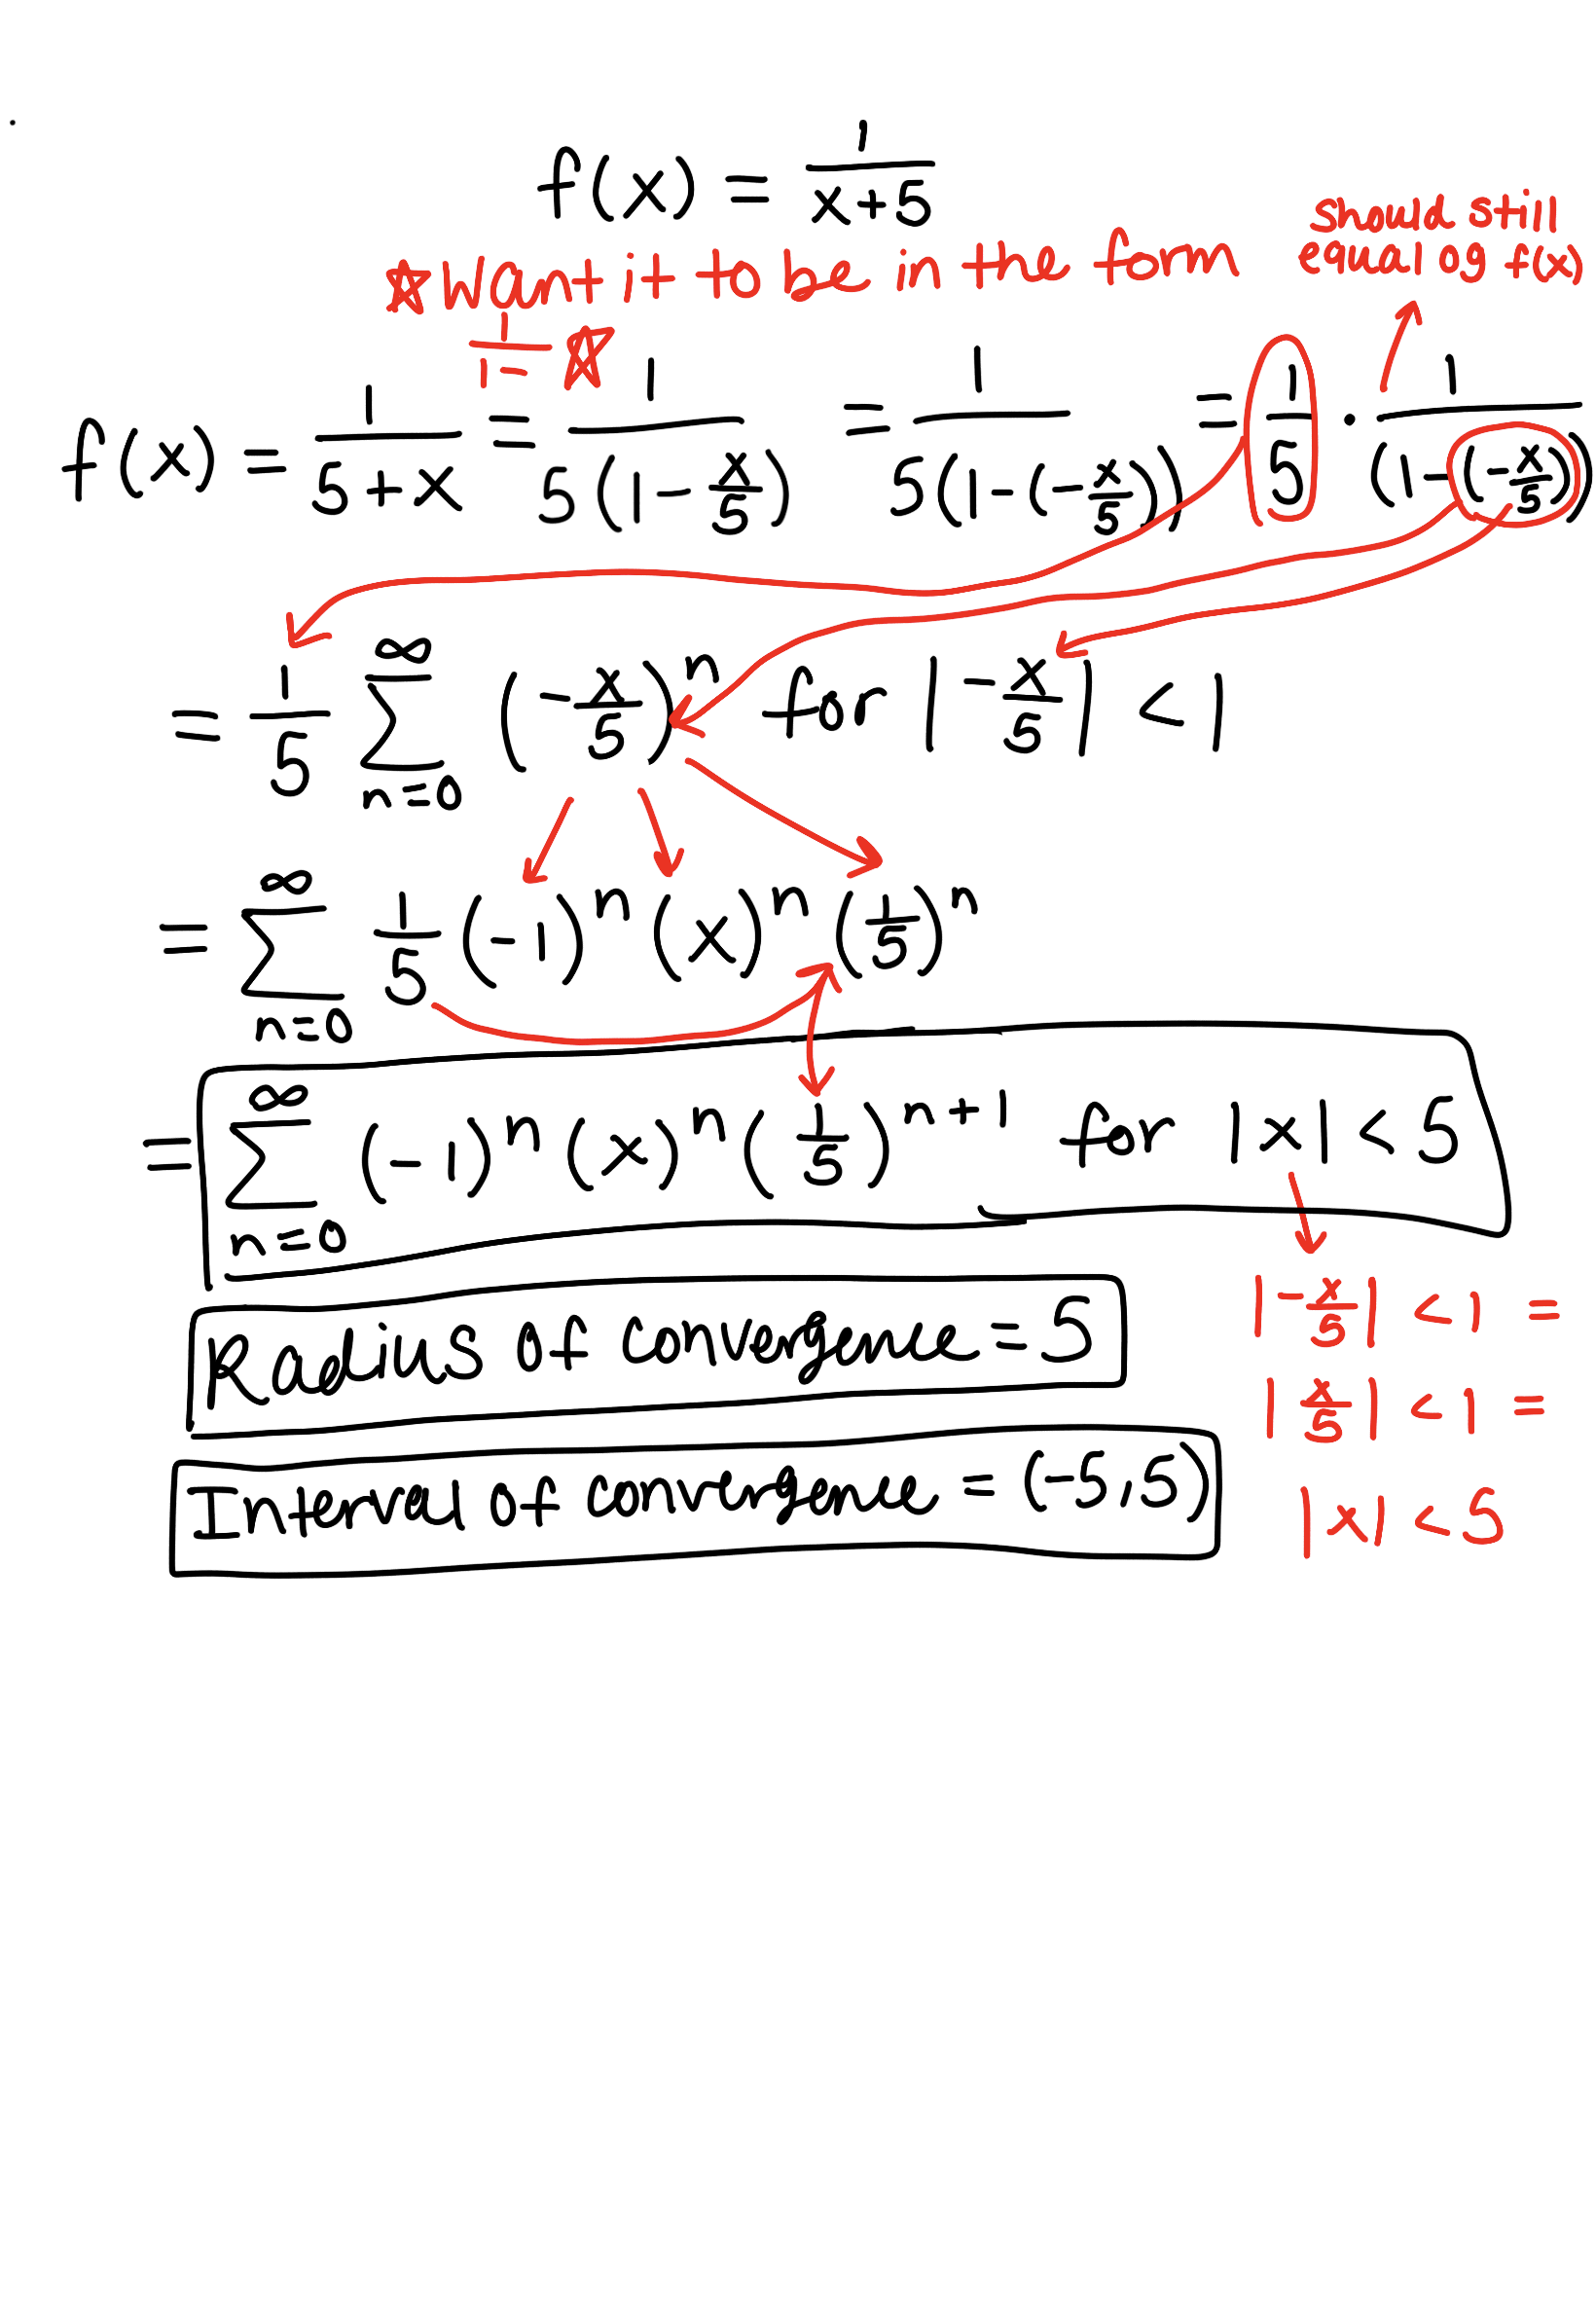 f(x) = 1/(x+5)
☆ Want it to be in the form
1/(1- ☆
should still
equal og f(x)
f(x) = 1/(5+x) = 1/(5(1-x/5)) = 1/(5(1-(-x/5))) = 1/5 · 1/(1-(-x/5))
= 1/5 ∑_{n=0}^{∞} (-x/5)^n for |-x/5| < 1
= ∑_{n=0}^{∞} 1/5 (-1)^n (x)^n (1/5)^n
= ∑_{n=0}^{∞} (-1)^n (x)^n (1/5)^{n+1} for |x| < 5
Radius of convergence = 5
Interval of convergence = (-5,5)
|-x/5| < 1 =
|x/5| < 1 =
|x| < 5